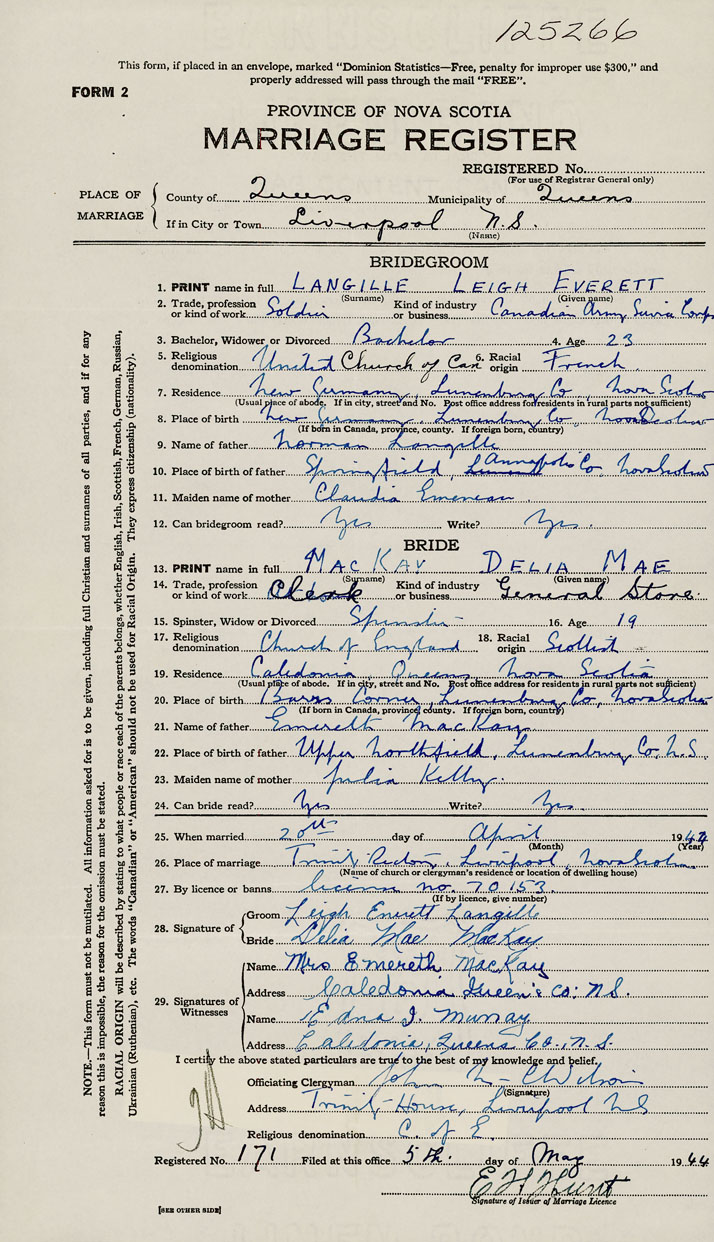 125266
This form, if placed in an envelope, marked “Dominion Statistics—Free, penalty for improper use $300,” and
properly addressed will pass through the mail “FREE”.
FORM 2
PROVINCE OF NOVA SCOTIA
MARRIAGE REGISTER
REGISTERED No.
(For use of Registrar General only)
PLACE OF MARRIAGE
County of Queens Municipality of Queens
If in City or Town Liverpool N.S.
(Name)
BRIDEGROOM
1. PRINT name in full LANGILLE LEIGH EVERETT
(Surname) (Given name)
2. Trade, profession or kind of work Soldier Kind of industry or business Canadian Army Service Corps
3. Bachelor, Widower or Divorced Bachelor 4. Age 23
5. Religious denomination United Church of Can 6. Racial origin French
7. Residence New Germany, Lunenburg Co, Nova Scotia
(Usual place of abode. If in city, street and No. Post office address for residents in rural parts not sufficient)
8. Place of birth New Germany, Lunenburg Co, Nova Scotia
(If born in Canada, province, county. If foreign born, country)
9. Name of father Norman Langille
10. Place of birth of father Springfield, Annapolis Co. Nova Scotia
11. Maiden name of mother Claudia Emeneau
12. Can bridegroom read? Yes Write? Yes.
BRIDE
13. PRINT name in full MACKAY DELIA MAE
(Surname) (Given name)
14. Trade, profession or kind of work Clerk Kind of industry or business General Store.
15. Spinster, Widow or Divorced Spinster 16. Age 19
17. Religious denomination Church of England 18. Racial origin Scottish
19. Residence Caledonia, Queens Nova Scotia
(Usual place of abode. If in city, street and No. Post office address for residents in rural parts not sufficient)
20. Place of birth Barss Corner, Lunenburg Co, Nova Scotia
(If born in Canada, province, county. If foreign born, country)
21. Name of father Emereth MacKay
22. Place of birth of father Upper Northfield, Lunenburg Co. N.S.
23. Maiden name of mother Julia Kelly.
24. Can bride read? Yes Write? Yes.
25. When married 20th day of April 194
(Month) (Year)
26. Place of marriage Trinity Rectory, Liverpool, Nova Scotia.
(Name of church or clergyman's residence or location of dwelling house)
27. By licence or banns license no. 70153.
(If by licence, give number)
28. Signature of
Groom Leigh Everett Langille
Bride Delia Mae MacKay
29. Signatures of Witnesses
Name Mrs Emereth MacKay
Address Caledonia Queen's Co: N.S.
Name Edna I. Murray
Address Caledonia, Queens Co. N.S.
I certify the above stated particulars are true to the best of my knowledge and belief.
Officiating Clergyman John
(Signature)
Address Trinity House, Liverpool NS
Religious denomination C. of E.
Registered No. 171 Filed at this office 5th. day of May 1944
E H Hunt
Signature of Issuer of Marriage Licence
[SEE OTHER SIDE]
NOTE.—This form must not be mutilated. All information asked for is to be given, including full Christian and surnames of all parties, and if for any
reason this is impossible, the reason for the omission must be stated.
RACIAL ORIGIN will be described by stating to what people or race each of the parents belongs, whether English, Irish, Scottish, French, German, Russian,
Ukrainian (Ruthenian), etc. The words “Canadian” or “American” should not be used for Racial Origin. They express citizenship (nationality).